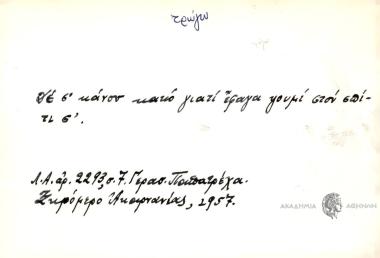 τρώγω
Δέ σ' κάνου κακό γιατί έφαγα ψουμί στόν σπί-
τι σ'.
Λ.Α. άρ. 2293, σ. 7, Γερασ. Παπατρέχα.
Ξηρόμερο Ἀκαρνανίας, 1957.
ΑΚΑΔΗΜΙΑ ΑΘΗΝΩΝ